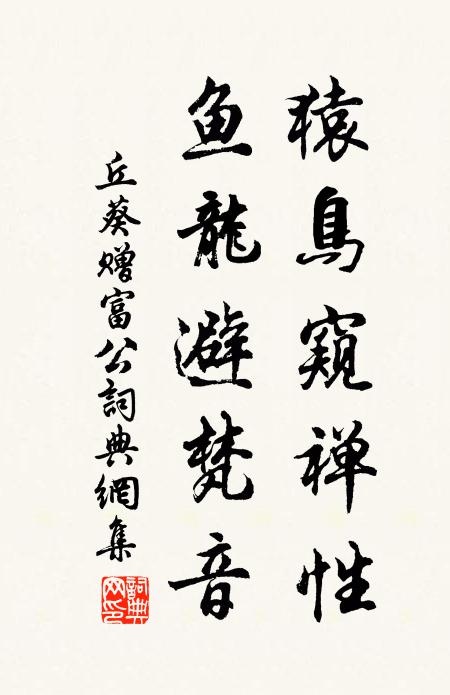 猿鳥窺禅性
鱼龍避梵音
丘葵赠富公詞典網集
詞典網印